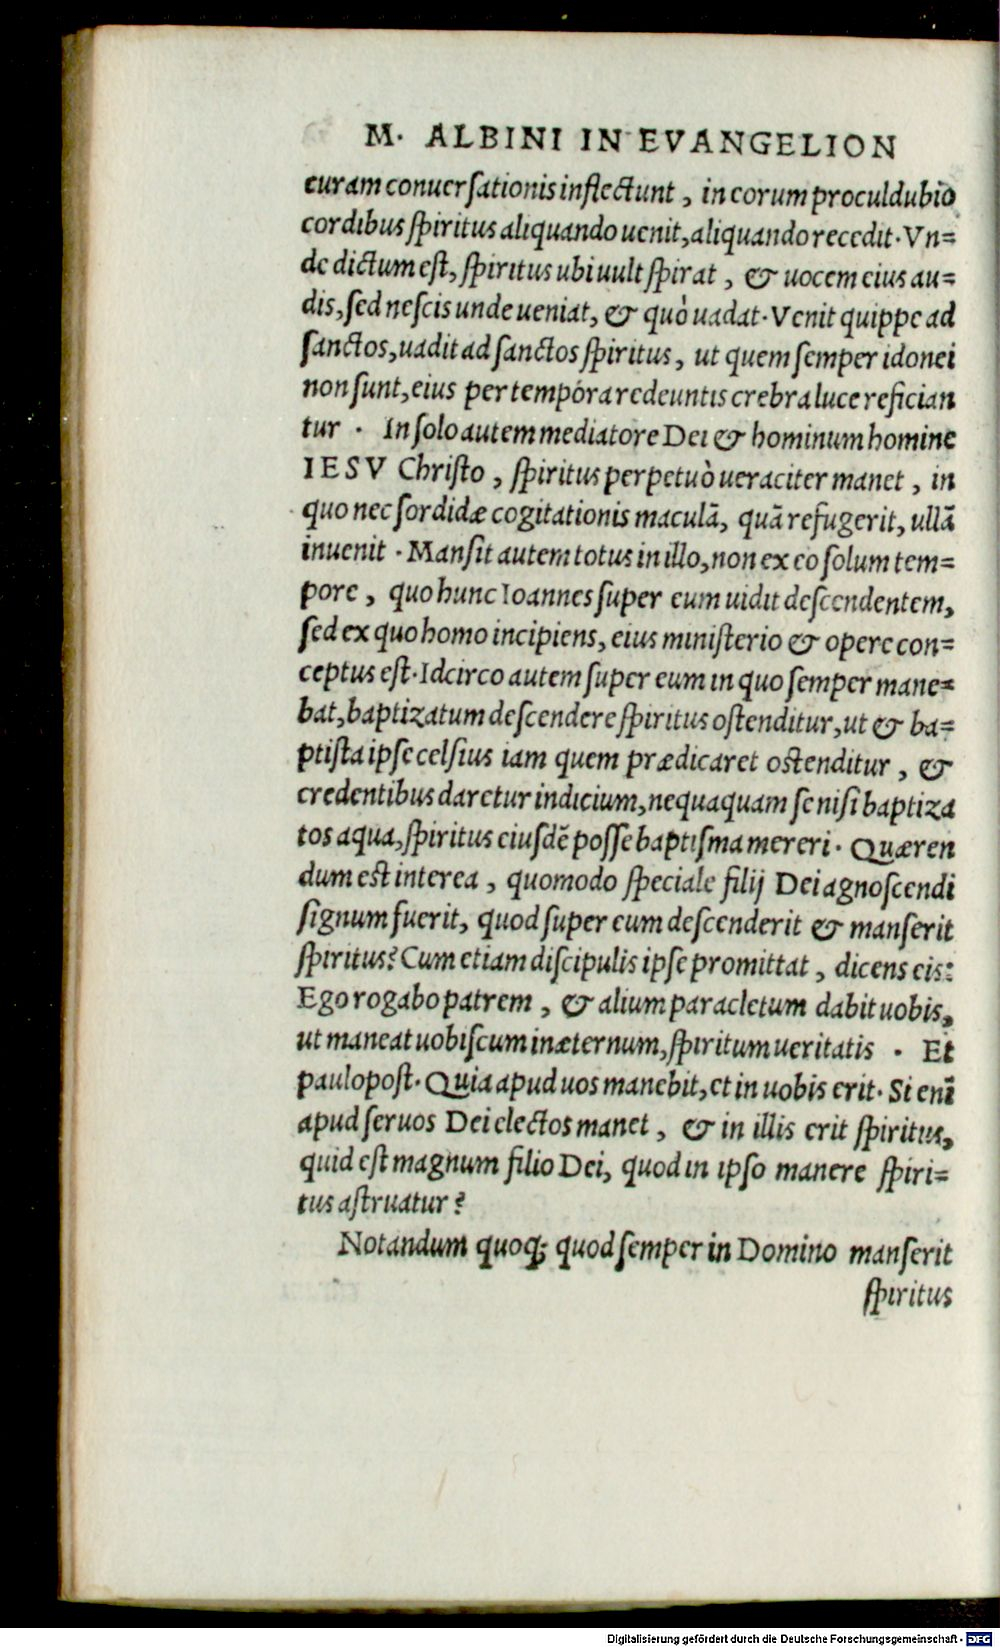 M. ALBINI IN EVANGELION
curam conuersationis inflectunt, in eorum proculdubio
cordibus spiritus aliquando uenit, aliquando recedit. Vn=
de dictum est, spiritus ubi uult spirat, & uocem eius au=
dis, sed nescis unde ueniat, & quò uadat. Venit quippe ad
sanctos, uadit ad sanctos spiritus, ut quem semper idonei
non sunt, eius per tempóra redeuntis crebra luce refician
tur. In solo autem mediatore Dei & hominum homine
IESV Christo, spiritus perpetuò ueraciter manet, in
quo nec sordidæ cogitationis maculā, quā refugerit, ullā
inuenit. Mansit autem totus in illo, non ex eo solum tem=
pore, quo hunc Ioannes super eum uidit descendentem,
sed ex quo homo incipiens, eius ministerio & opere con=
ceptus est. Idcirco autem super eum in quo semper mane=
bat, baptizatum descendere spiritus ostenditur, ut & ba=
ptista ipse celsius iam quem prædicaret ostenditur, &
credentibus daretur indicium, nequaquam se nisi baptiza
tos aqua, spiritus eiusdē posse baptisma mereri. Quæren
dum est interea, quomodo speciale filij Dei agnoscendi
signum fuerit, quod super eum descenderit & manserit
spiritus? Cum etiam discipulis ipse promittat, dicens eis:
Ego rogabo patrem, & alium paracletum dabit uobis,
ut maneat uobiscum in æternum, spiritum ueritatis. Et
paulo post. Quia apud uos manebit, et in uobis erit. Si enī
apud seruos Dei electos manet, & in illis erit spiritus,
quid est magnum filio Dei, quod in ipso manere spiri=
tus astruatur?
Notandum quoq; quod semper in Domino manserit
spiritus
Digitalisierung gefördert durch die Deutsche Forschungsgemeinschaft - DFG